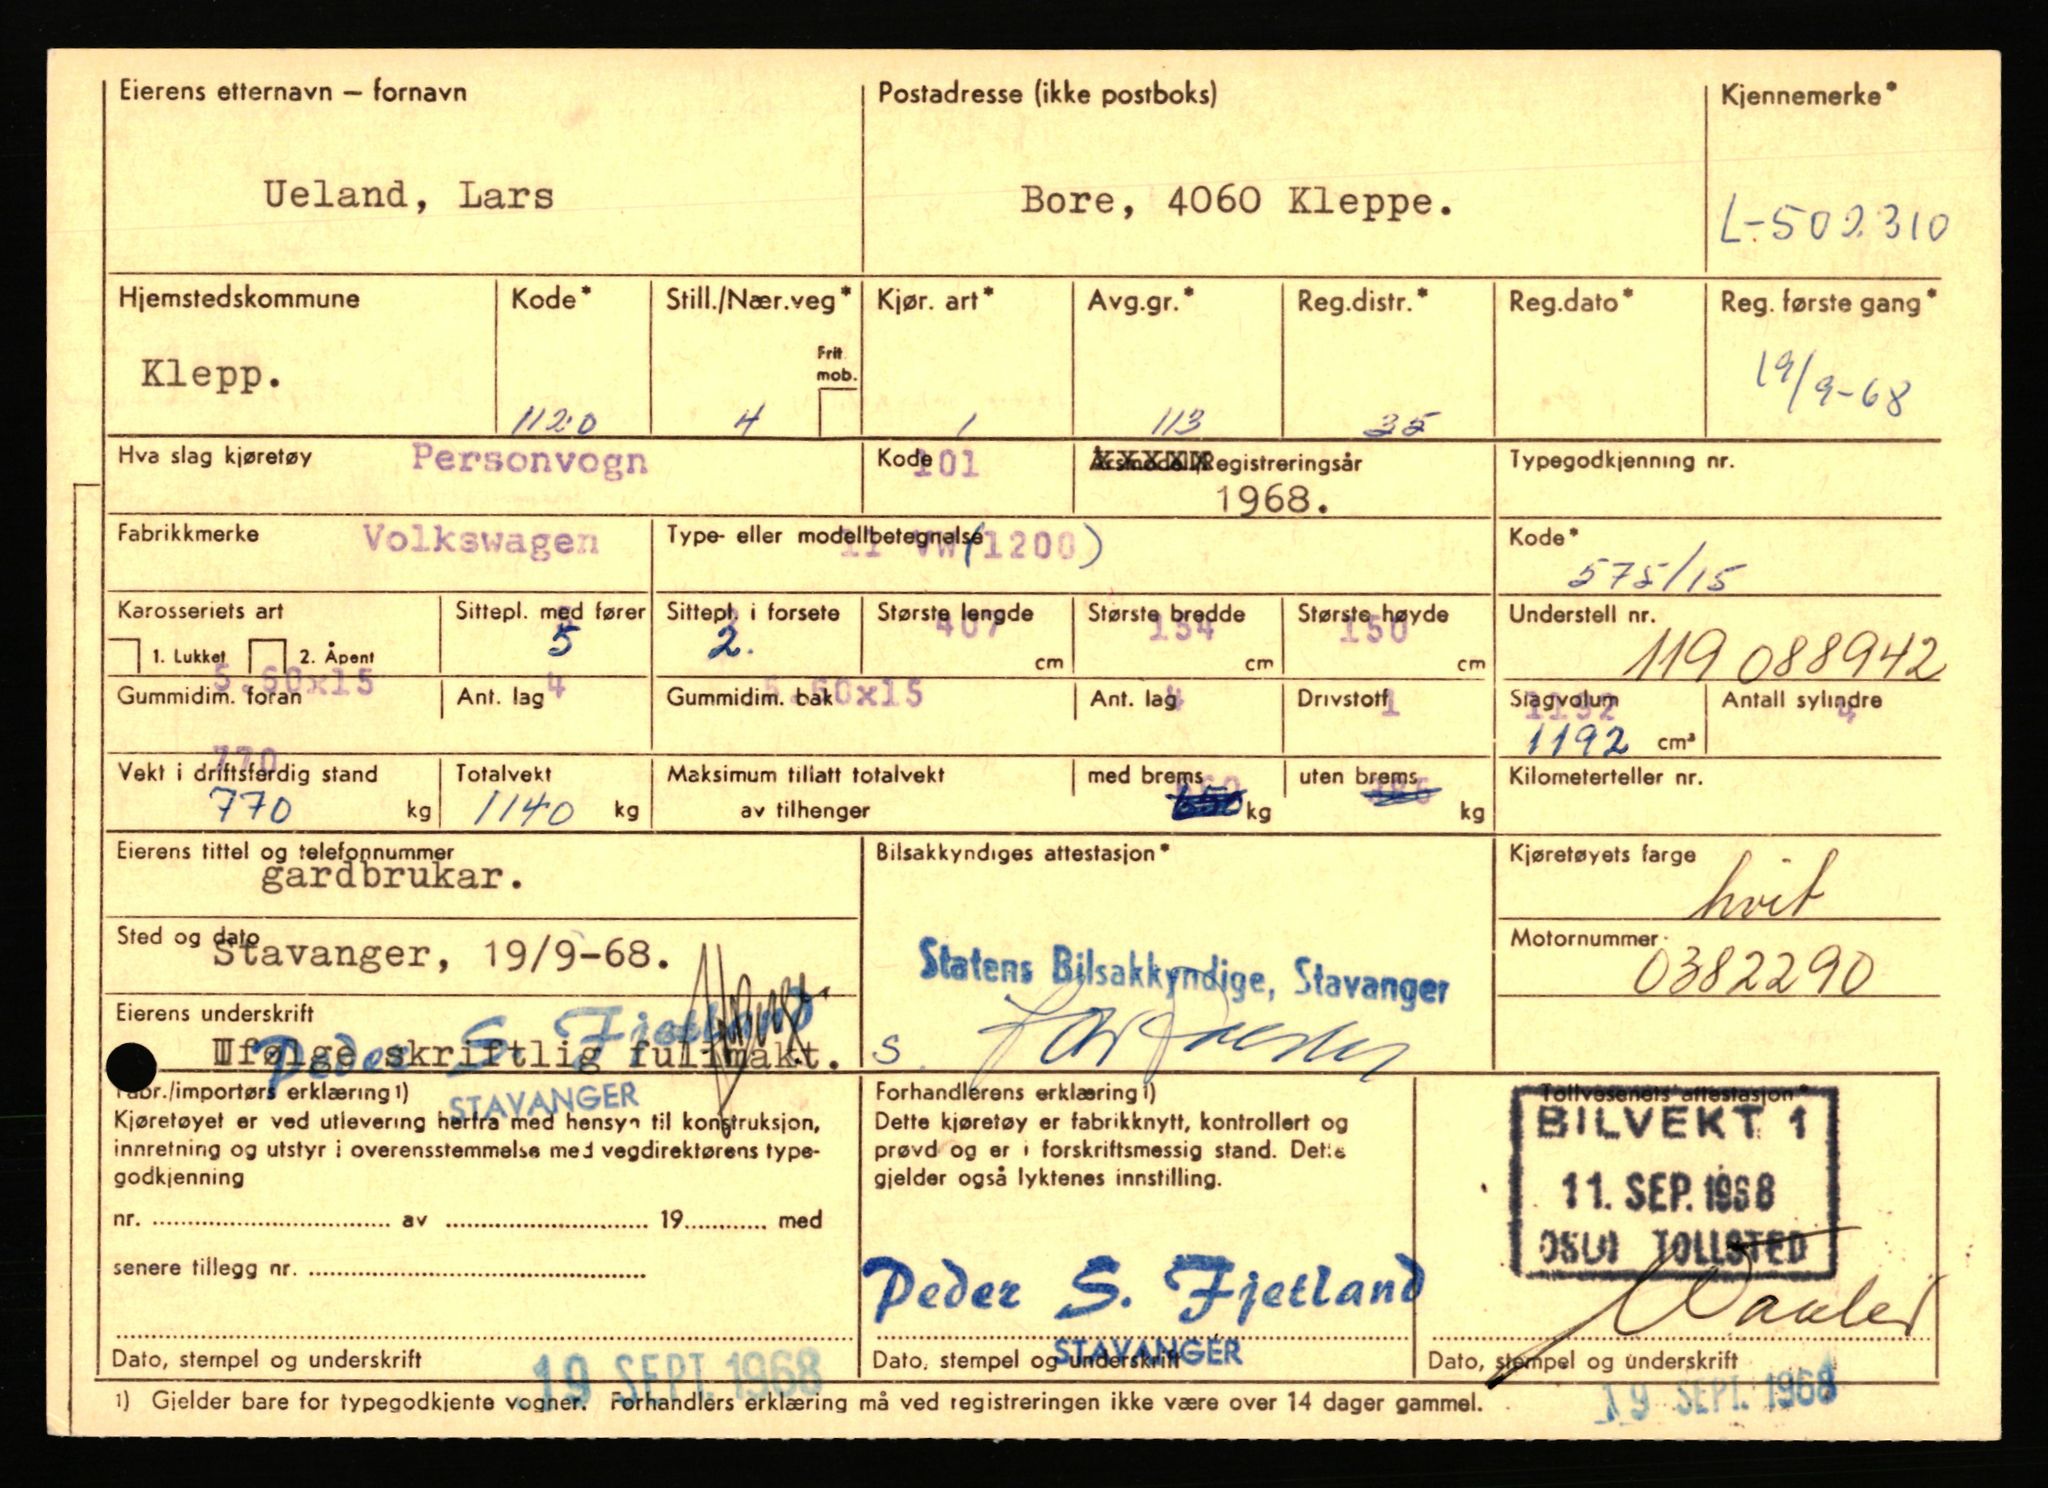 Eierens etternavn – fornavn
Postadresse (ikke postboks)
Kjennemerke*
Ueland, Lars
Bore, 4060 Kleppe.
L-502310
Hjemstedskommune
Kode*
Still./Nær.veg*
Kjør. art*
Avg.gr.*
Reg.distr.*
Reg.dato*
Reg. første gang*
Frit. mob.
Klepp.
1120
4
1
113
35
19/9-68
Hva slag kjøretøy
Personvogn
Kode
101
Årsmodell/Registreringsår
1968.
Typegodkjenning nr.
Fabrikkmerke
Volkswagen
Type- eller modellbetegnelse
11 VW (1200)
Kode*
575/15
Karosseriets art
Sittepl. med fører
Sittepl. i forsete
Største lengde
Største bredde
Største høyde
Understell nr.
1. Lukket
2. Åpent
5
2.
407 cm
154 cm
150 cm
119 088942
5.60x15
4
5.60x15
4
1
1192
4
Gummidim. foran
Ant. lag
Gummidim. bak
Ant. lag
Drivstoff
Slagvolum
Antall sylindre
1192 cm³
770
Vekt i driftsferdig stand
Totalvekt
Maksimum tillatt totalvekt
med brems
uten brems
Kilometerteller nr.
770 kg
1140 kg
av tilhenger
650 kg
kg
Eierens tittel og telefonnummer
Bilsakkyndiges attestasjon*
Kjøretøyets farge
gardbrukar.
hvit
Sted og dato
Stavanger, 19/9-68.
Statens Bilsakkyndige, Stavanger
Motornummer
0382290
Eierens underskrift
Peder S. Fjetland
Ifølge skriftlig fullmakt.
STAVANGER
S.
Fabr./importørs erklæring 1)
Kjøretøyet er ved utlevering herfra med hensyn til konstruksjon,
innretning og utstyr i overensstemmelse med vegdirektørens type-
godkjenning
nr. .......... av .......... 19.......... med
senere tillegg nr. ..........
Dato, stempel og underskrift
19 SEPT. 1968
Forhandlerens erklæring 1)
Dette kjøretøy er fabrikknytt, kontrollert og
prøvd og er i forskriftsmessig stand. Dette
gjelder også lyktenes innstilling.
Peder S. Fjetland
STAVANGER
Dato, stempel og underskrift
Tollvesenets attestasjon*
BILVEKT 1
11. SEP. 1968
OSLO TOLLSTED
Dato, stempel og underskrift
19 SEPT. 1968
1) Gjelder bare for typegodkjente vogner. Forhandlers erklæring må ved registreringen ikke være over 14 dager gammel.